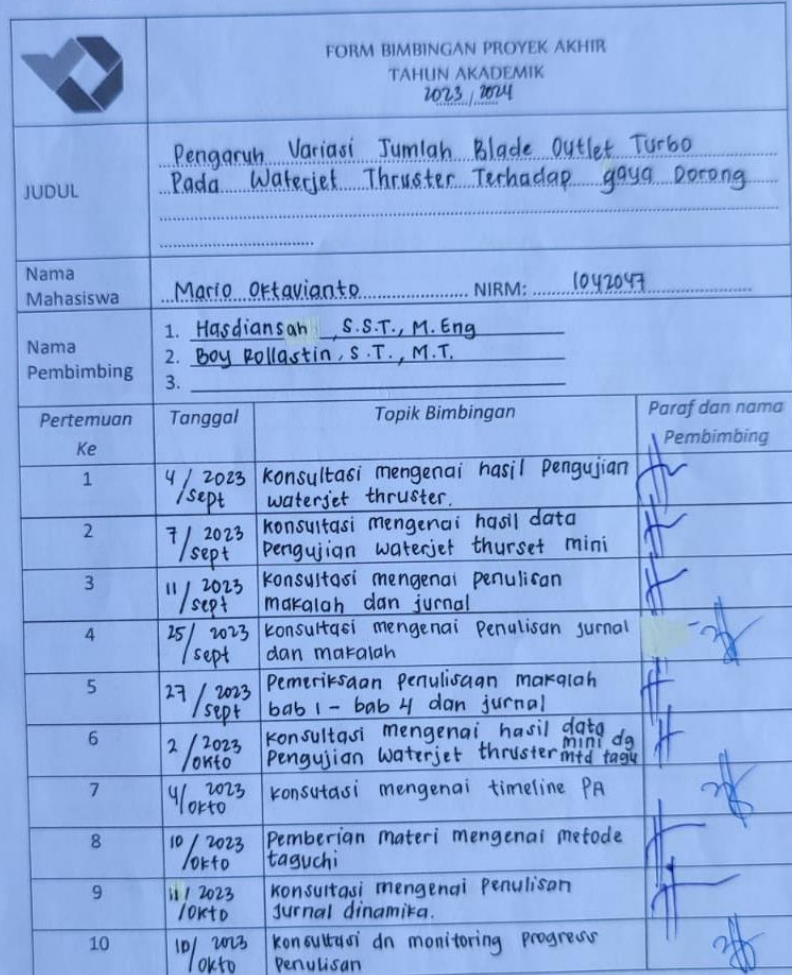 FORM BIMBINGAN PROYEK AKHIR
TAHUN AKADEMIK
2023 / 2024
JUDUL
Pengaruh Variasi Jumlah Blade Outlet Turbo
Pada Waterjet Thruster Terhadap gaya Dorong
Nama
Mahasiswa
Mario Oktavianto NIRM: 1042047
Nama
Pembimbing
1. Hasdiansah, S.S.T., M.Eng
2. Boy Rollastin, S.T., M.T.
3.
Pertemuan
Ke
Tanggal
Topik Bimbingan
Paraf dan nama
Pembimbing
1
4 / 2023
/sept
konsultasi mengenai hasil Pengujian
waterjet thruster.
2
7 / 2023
/sept
konsultasi mengenai hasil data
Pengujian waterjet thurset mini
3
11 / 2023
/sept
konsultasi mengenai penulisan
makalah dan jurnal
4
25 / 2023
/sept
konsultasi mengenai Penulisan jurnal
dan makalah
5
27 / 2023
/sept
Pemeriksaan Penulisaan makalah
bab 1 - bab 4 dan jurnal
6
2 / 2023
/okto
konsultasi mengenai hasil data
Pengujian Waterjet thruster mini dg
mtd tagu
7
4 / 2023
/okto
konsutasi mengenai timeline PA
8
10 / 2023
/okto
Pemberian materi mengenai metode
taguchi
9
11 / 2023
/okto
konsultasi mengenai Penulisan
Jurnal dinamika.
10
10 / 2023
/okto
konsultasi dn monitoring progress
Penulisan